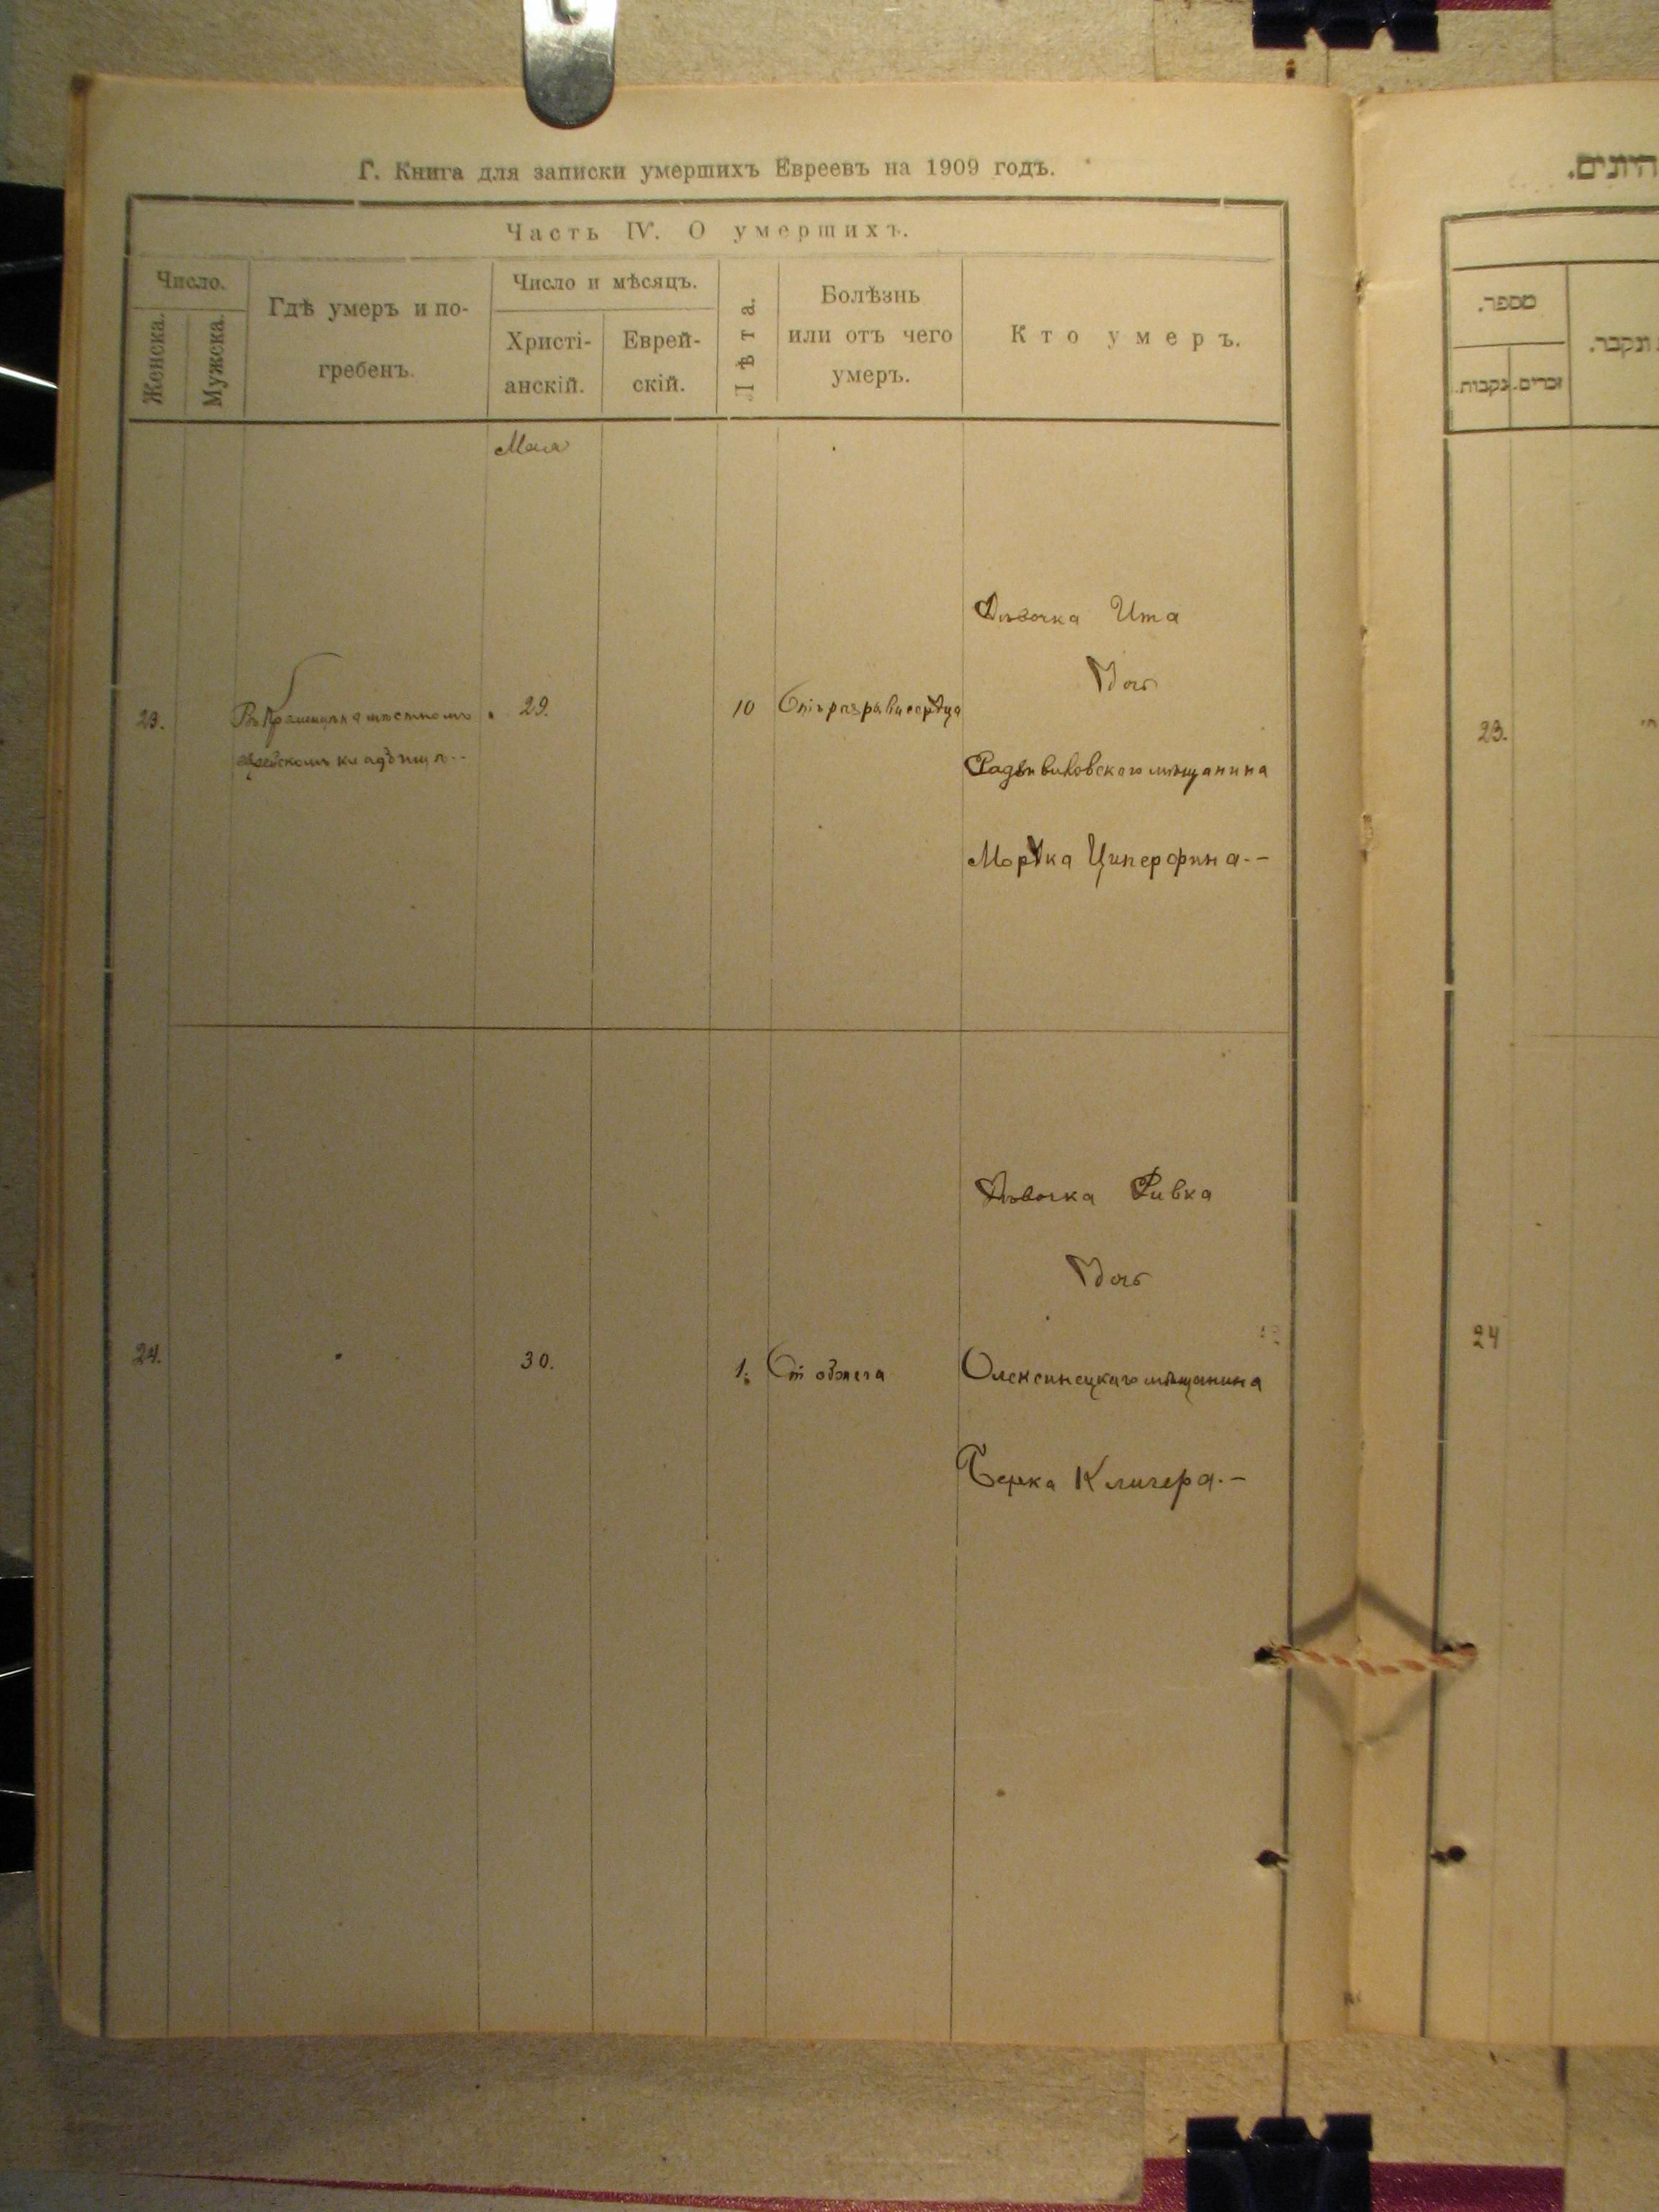 Г. Книга для записки умершихъ Евреевъ на 1909 годъ.
Часть IV. О умершихъ.
Число.
Женска.
Мужска.
Гдѣ умеръ и по-
гребенъ.
Число и мѣсяцъ.
Христі-
анскій.
Еврей-
скій.
Лѣта.
Болѣзнь
или отъ чего
умеръ.
Кто умеръ.
Мая
23.
на мѣстномъ
еврейскомъ кладбищѣ
29.
10
Дѣвочка Ита
Дочь
мѣщанина
Мордка Циперфина.-
24.
30.
1.
Дѣвочка Ривка
Дочь
Олексинецкаго мѣщанина
Берка Кличера.-
מספר.
זכרים.
נקבות.
ונקבר.
23.
24